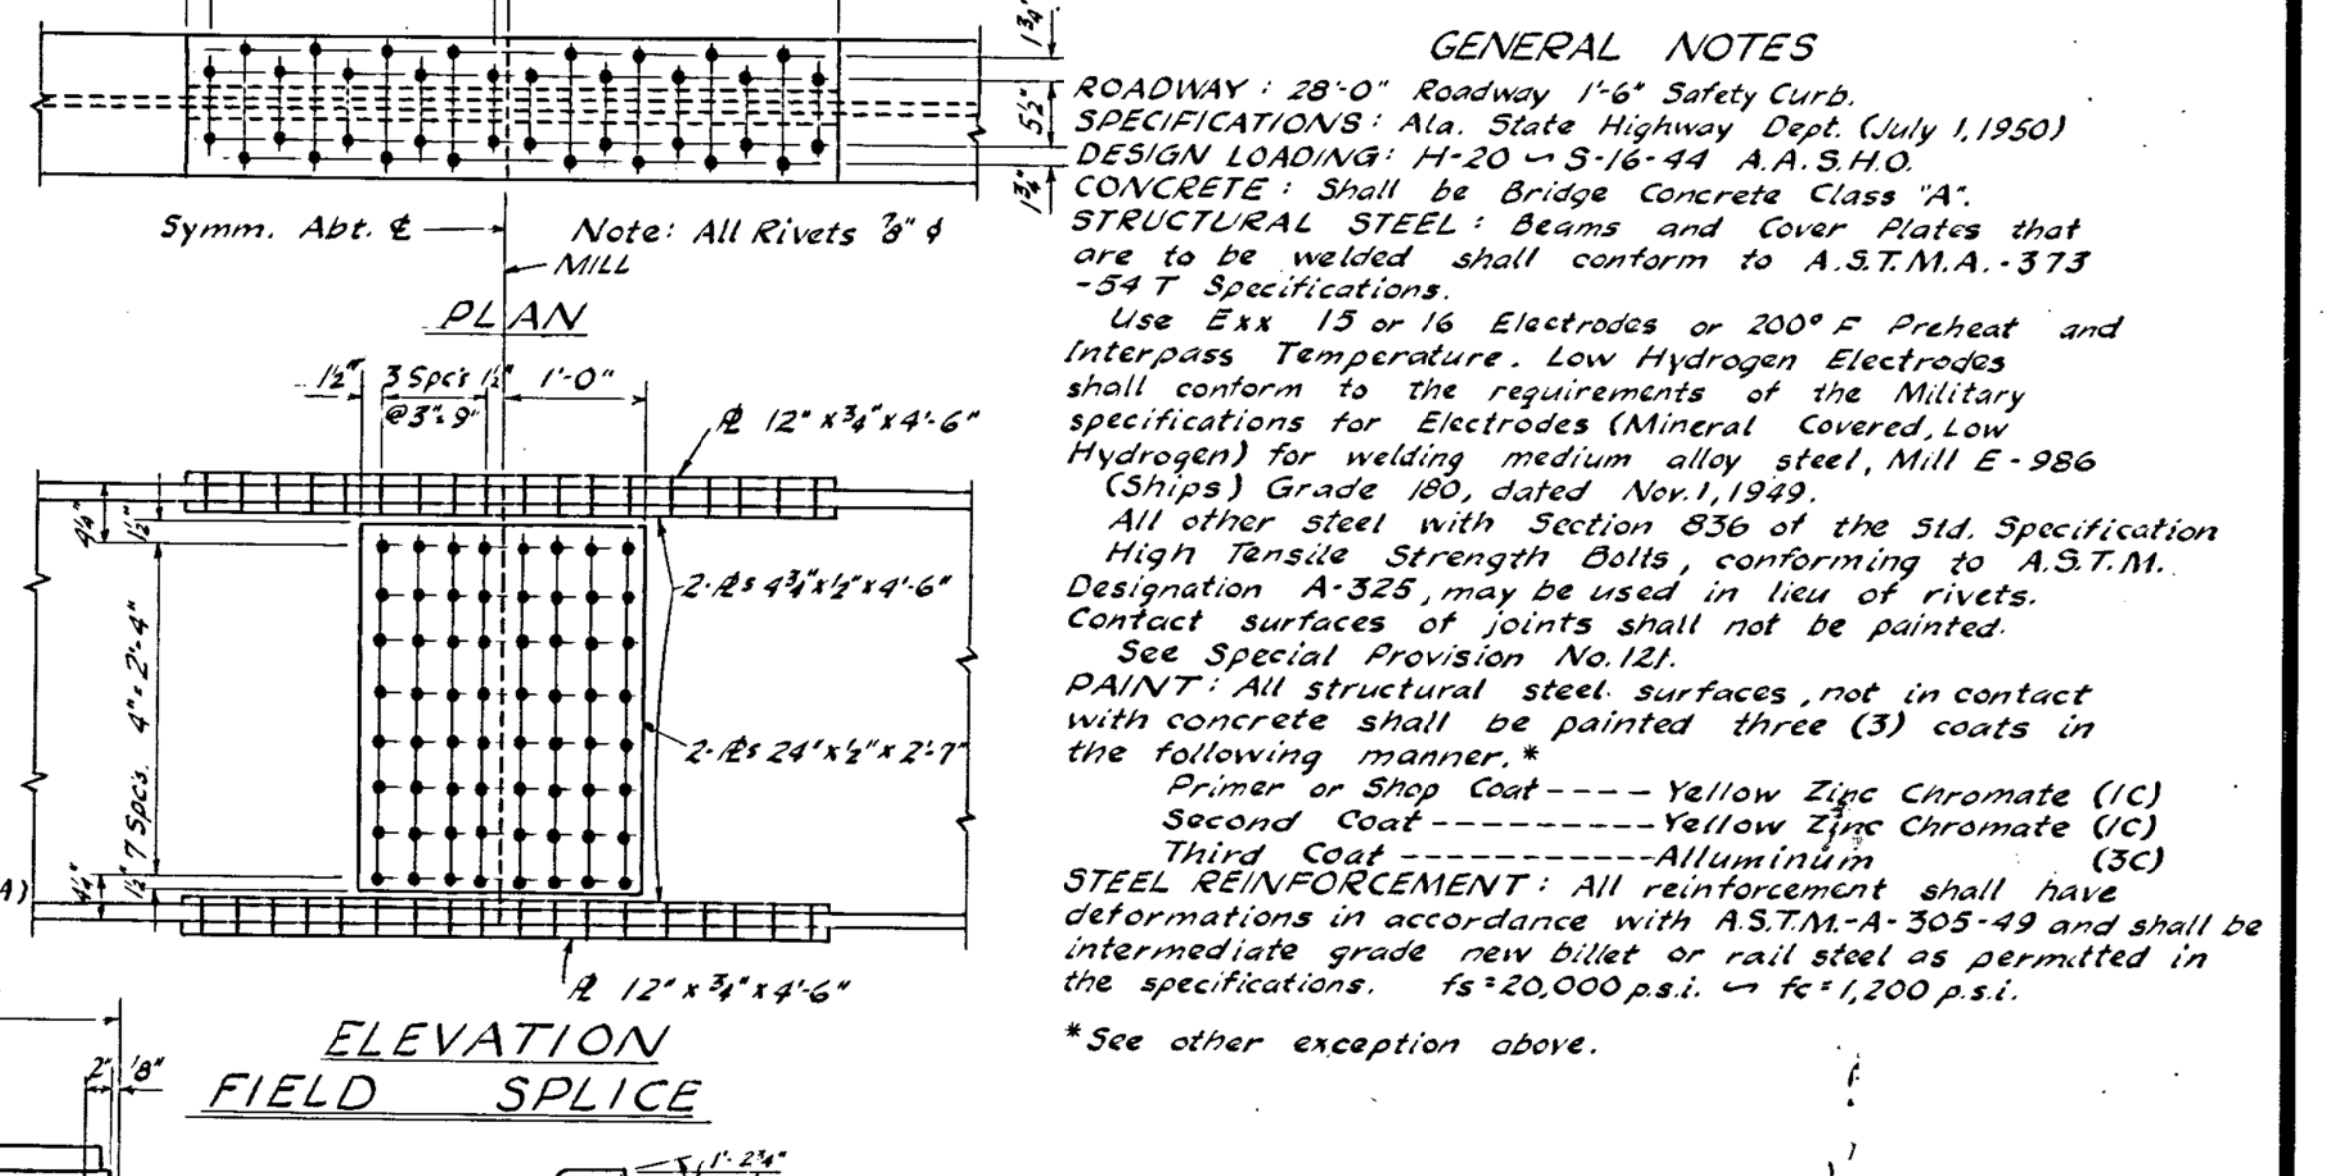 1¾"
5½"
1¾"
Symm. Abt. ℄
Note: All Rivets ⅞" ϕ
MILL
PLAN
1½"
3 Spc's
@3"=9"
1½"
1'-0"
℄ 12" x ¾" x 4'-6"
4¼"
1½"
2-℄s 4¾" x ½" x 4'-6"
7 Spcs. 4" = 2'-4"
2-℄s 24" x ½" x 2'-7"
4¼"
1½"
A)
℄ 12" x ¾" x 4'-6"
ELEVATION
FIELD SPLICE
2"
⅛"
1'-2¾"
GENERAL NOTES
ROADWAY : 28'-0" Roadway 1'-6" Safety Curb.
SPECIFICATIONS: Ala. State Highway Dept. (July 1, 1950)
DESIGN LOADING: H-20 ~ S-16-44 A.A.S.H.O.
CONCRETE : Shall be Bridge Concrete Class "A".
STRUCTURAL STEEL : Beams and Cover Plates that
are to be welded shall conform to A.S.T.M.A.-373
-54 T Specifications.
Use Exx 15 or 16 Electrodes or 200° F Preheat and
Interpass Temperature. Low Hydrogen Electrodes
shall conform to the requirements of the Military
specifications for Electrodes (Mineral Covered, Low
Hydrogen) for welding medium alloy steel, Mill E-986
(Ships) Grade 180, dated Nov. 1, 1949.
All other steel with Section 836 of the Std. Specification
High Tensile Strength Bolts, conforming to A.S.T.M.
Designation A-325, may be used in lieu of rivets.
Contact surfaces of joints shall not be painted.
See Special Provision No. 121.
PAINT: All structural steel surfaces, not in contact
with concrete shall be painted three (3) coats in
the following manner. *
Primer or Shop Coat ---- Yellow Zinc Chromate (1C)
Second Coat ---------- Yellow Zinc Chromate (1C)
Third Coat ----------- Alluminum (3C)
STEEL REINFORCEMENT: All reinforcement shall have
deformations in accordance with A.S.T.M.-A-305-49 and shall be
intermediate grade new billet or rail steel as permitted in
the specifications. fs = 20,000 p.s.i. ~ fc = 1,200 p.s.i.
* See other exception above.